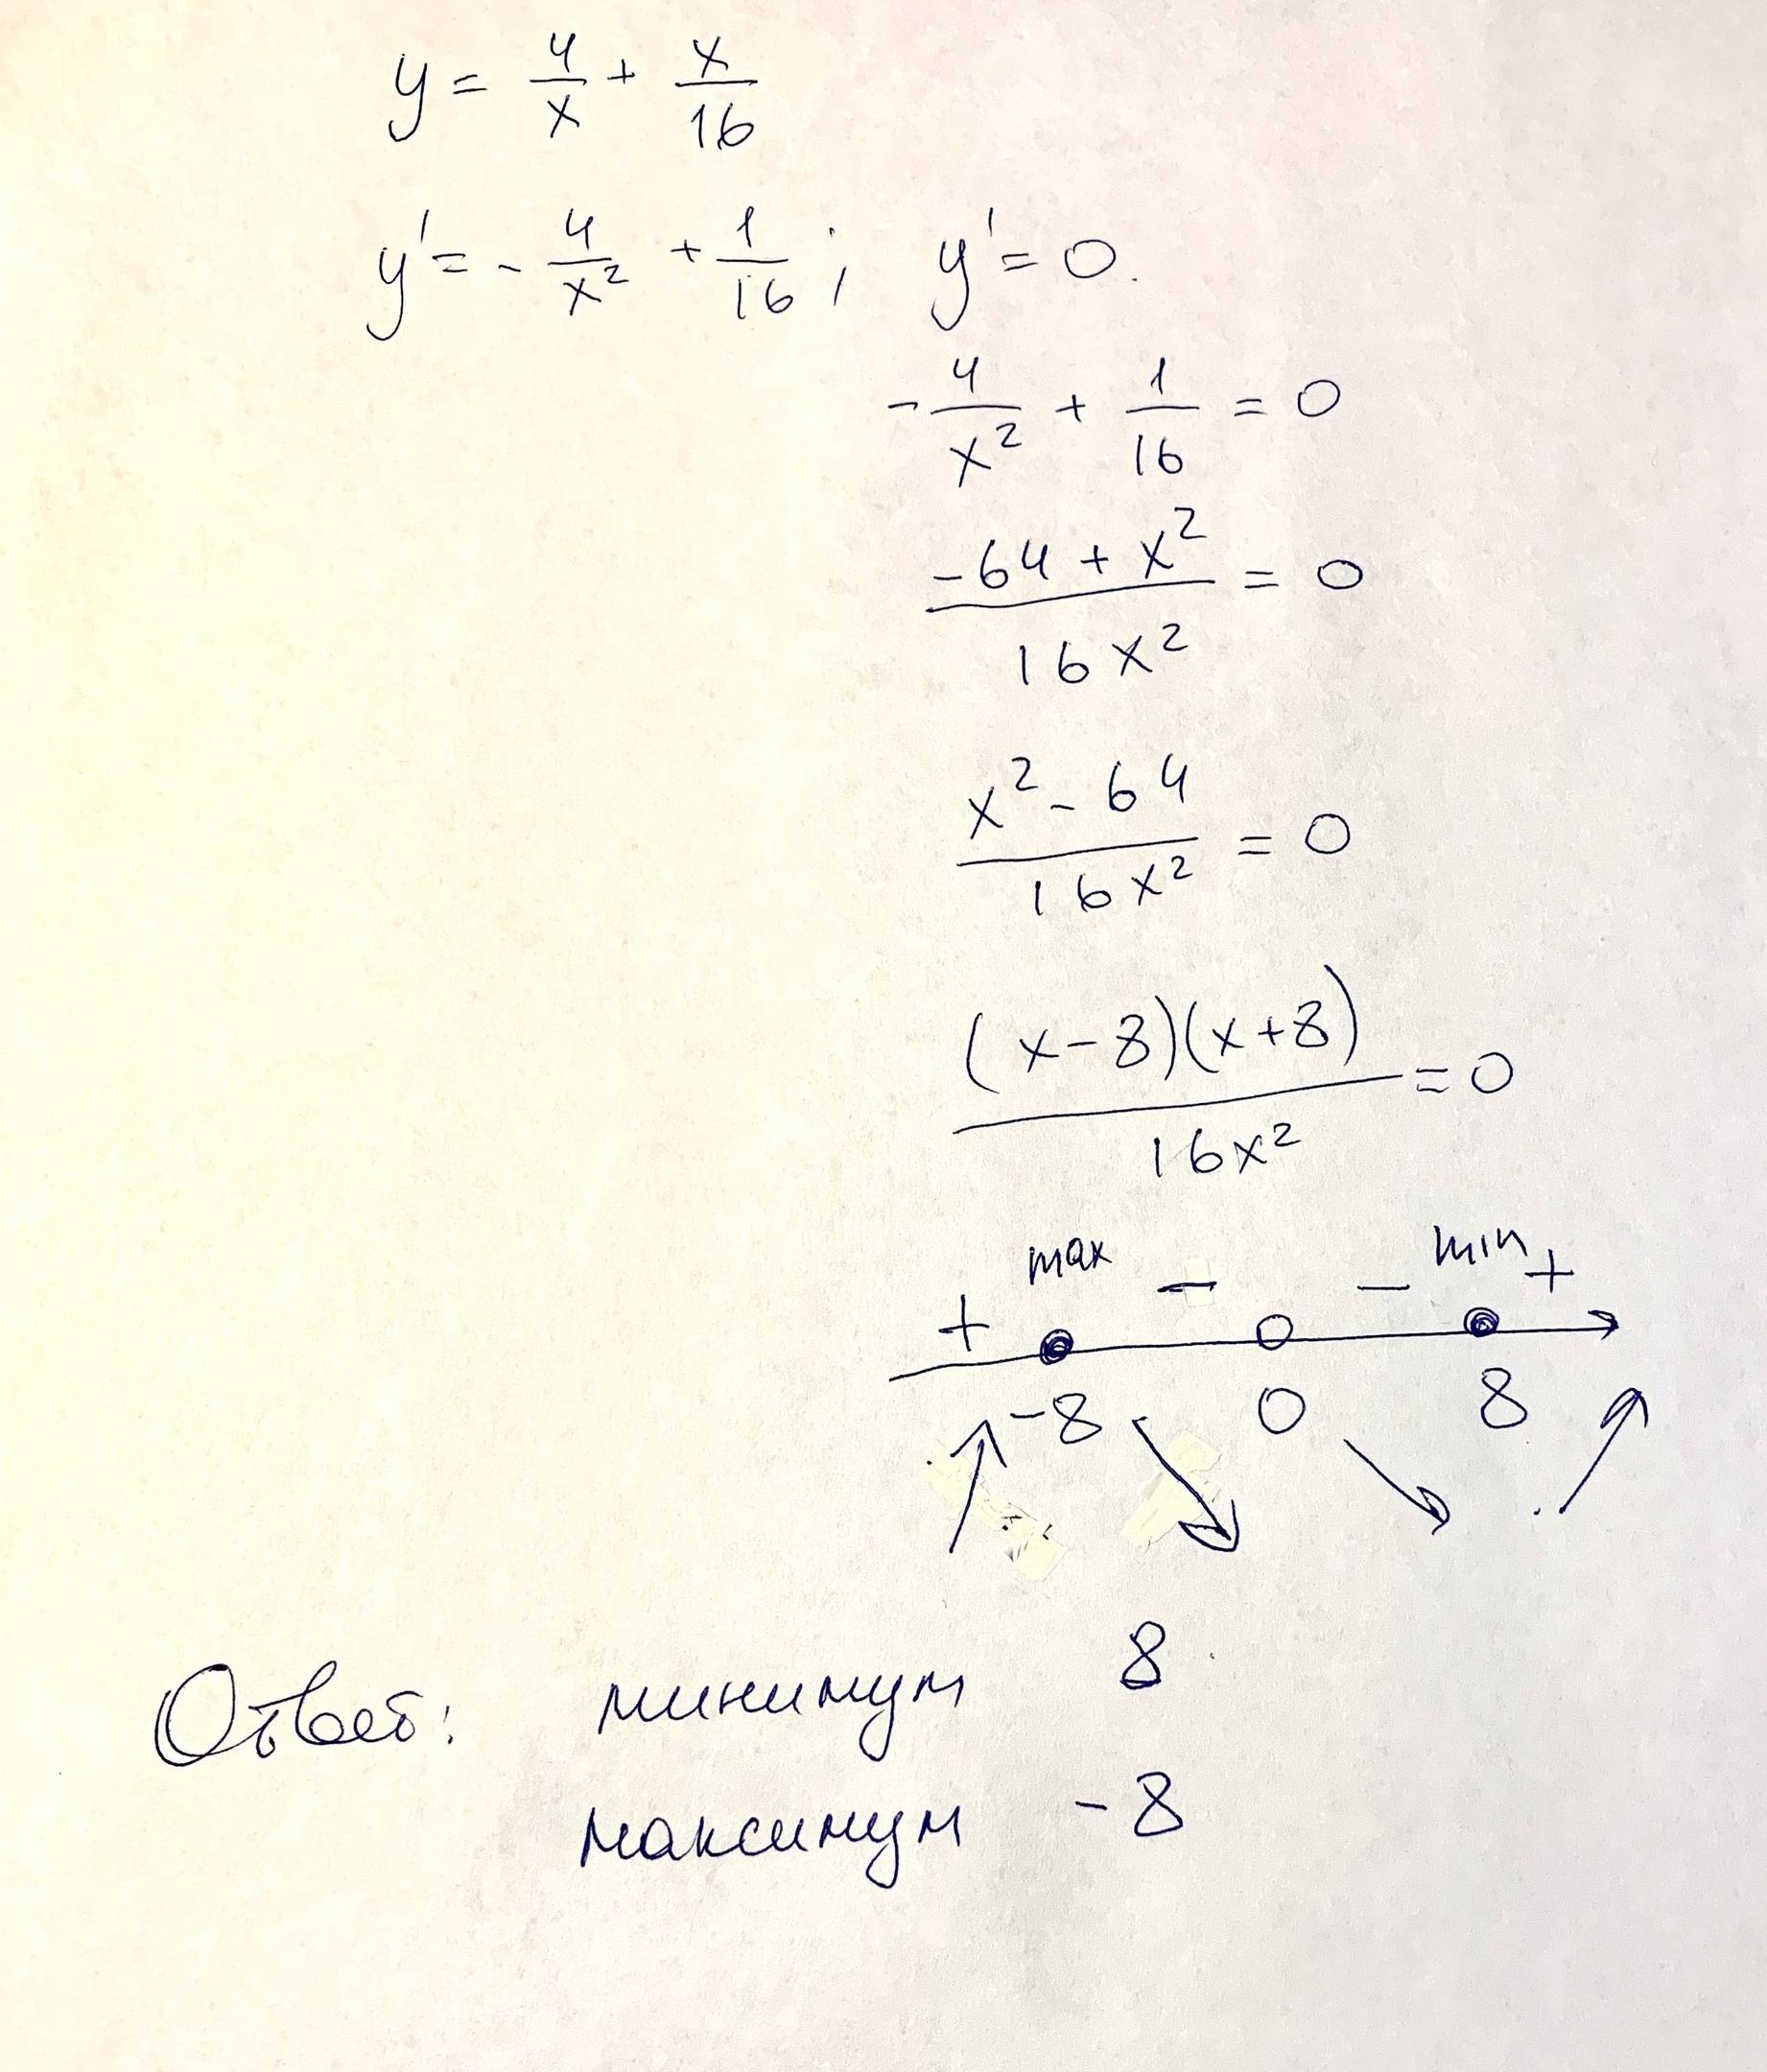 y = 4/x + x/16
y' = - 4/x² + 1/16 ; y' = 0.
- 4/x² + 1/16 = 0
(-64 + x²)/(16x²) = 0
(x² - 64)/(16x²) = 0
((x-8)(x+8))/(16x²) = 0
+ max - - min +
-8 0 8
Ответ: минимум 8
максимум -8